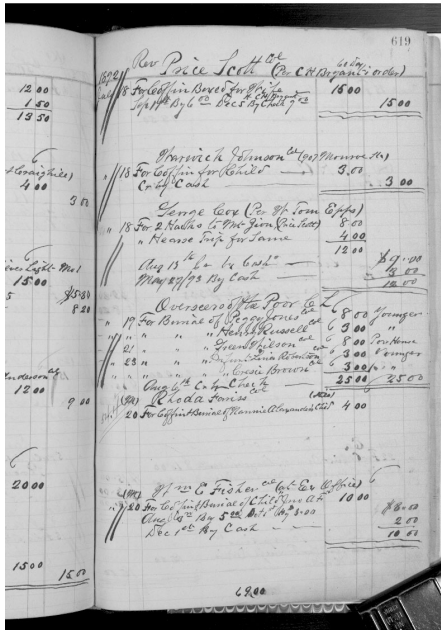 619
Rev Price Scott col (Per C H Bryant's order)
60 day
1892
July 18 For Coffin Boxed for Wife 15 00
Sept 14th By 6 00 Dec 5 By Check 9 00 15 00
Warwick Johnson col (907 Monroe St)
" 18 For Coffin for Child 3.00
Cr by Cash 3 00
George Cox (Per W Tom Epps)
" 18 For 2 Hacks to Mt Zion (Price Scott) 8 00
" Hearse Trip for Same 4 00
12 00
Aug 13th Cr by Cash $9.00
May 29/93 By Cash 3 00
12 00
Overseers of the Poor C L
" 19 For Burial of Peggy Jones col 8 00 Younger
" " " " Henry Russell col 3 00 "
" 21 " " " Green Wilson col 8 00 Poor House
" 23 " " " Infant Robertson col 3 00 Younger
" " " " " Cresie Brown col 3 00 "
Aug 6th Cr by Check 25 00 25 00
Rhoda Farise col
20 For Coffin & Burial of Mannie Alexander's Child 4 00
Wm E Fisher col (at Ex Office)
" 20 For Coffin & Burial of Child 10 00
Aug By 5 00 Oct 1st By 3.00 $8.00
Dec 1st By Cash 2 00
10 00
69.00
12 00
1 50
13 50
4 00
3 00
15 00
8 20
12 00
9 00
20 00
15 00
15 00